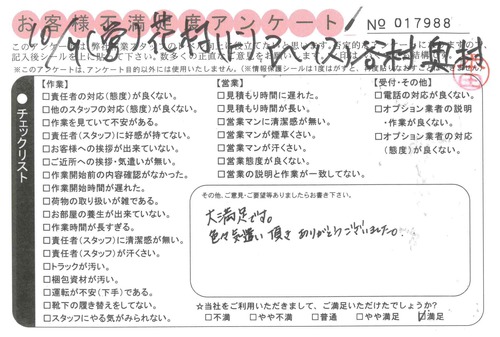 お客様不満足度アンケート
No 017988
チェックリスト
【作業】
□責任者の対応(態度)が良くない。
□他のスタッフの対応(態度)が良くない。
□作業を見ていて不安がある。
□責任者(スタッフ)に好感が持てない。
□お客様への挨拶が出来ていない。
□ご近所への挨拶・気遣いが無い。
□作業開始前の内容確認がなかった。
□作業開始時間が遅れた。
□荷物の取り扱いが雑である。
□お部屋の養生が出来ていない。
□作業時間が長すぎる。
□責任者(スタッフ)に清潔感が無い。
□責任者(スタッフ)が汗くさい。
□トラックが汚い。
□梱包資材が汚い。
□運転が不安(下手)である。
□靴下の履き替えをしてない。
□スタッフにやる気がみられない。
【営業】
□見積もり時間に遅れた。
□見積もり時間が長い。
□営業マンに清潔感が無い。
□営業マンが煙草くさい。
□営業マンが汗くさい。
□営業態度が良くない。
□営業の説明と作業が一致してない。
【受付・その他】
□電話の対応が良くない。
□オプション業者の説明
・作業が良くない。
□オプション業者の対応
(態度)が良くない。
その他、ご意見・ご要望等ありましたらお書き下さい。
大満足です。
色々気遣い頂き ありがとうございました。
☆当社をご利用いただきまして、ご満足いただけたでしょうか?
□不満 □やや不満 □普通 □やや満足 ☑満足